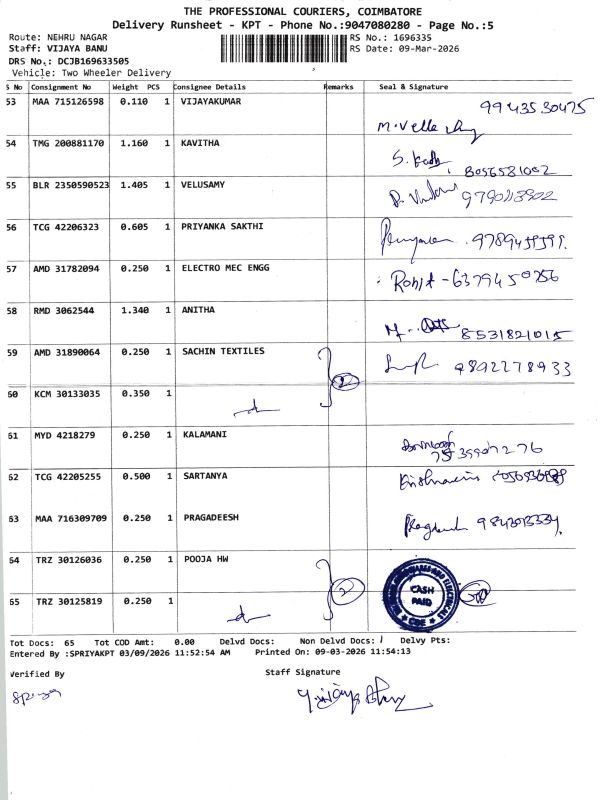 THE PROFESSIONAL COURIERS, COIMBATORE
Delivery Runsheet - KPT - Phone No.:9047080280 - Page No.:5
Route: NEHRU NAGAR
RS No.: 1696335
Staff: VIJAYA BANU
RS Date: 09-Mar-2026
DRS No.: DCJB169633505
Vehicle: Two Wheeler Delivery
S No Consignment No Weight PCS Consignee Details Remarks Seal & Signature
53 MAA 715126598 0.110 1 VIJAYAKUMAR
54 TMG 200881170 1.160 1 KAVITHA 8056581002
55 BLR 2350590523 1.405 1 VELUSAMY
56 TCG 42206323 0.605 1 PRIYANKA SAKTHI
57 AMD 31782094 0.250 1 ELECTRO MEC ENGG
58 RMD 3062544 1.340 1 ANITHA 8531821015
59 AMD 31890064 0.250 1 SACHIN TEXTILES 9892278933
60 KCM 30133035 0.350 1
61 MYD 4218279 0.250 1 KALAMANI
62 TCG 42205255 0.500 1 SARTANYA
63 MAA 716309709 0.250 1 PRAGADEESH
64 TRZ 30126036 0.250 1 POOJA HW 2
CASH
PAID
65 TRZ 30125819 0.250 1
Tot Docs: 65 Tot COD Amt: 0.00 Delvd Docs: Non Delvd Docs: 1 Delvy Pts:
Entered By :SPRIYAKPT 03/09/2026 11:52:54 AM Printed On: 09-03-2026 11:54:13
Verified By
Staff Signature